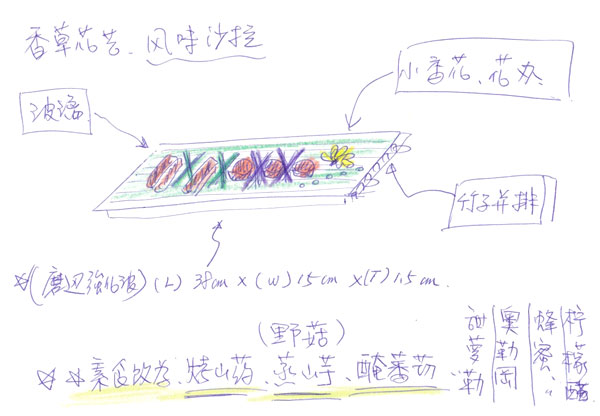 香草花芸、风味沙拉
小香花、花瓣
玻璃
竹子并排
☆(磨边強化玻) (L) 38cm × (W) 15cm ×(T) 1.5cm.
(野菇)
☆☆素食改为、烤山药、蒸山芋、醃蕃茄、
甜萝勒
奥勒岡
蜂蜜、
柠檬醋